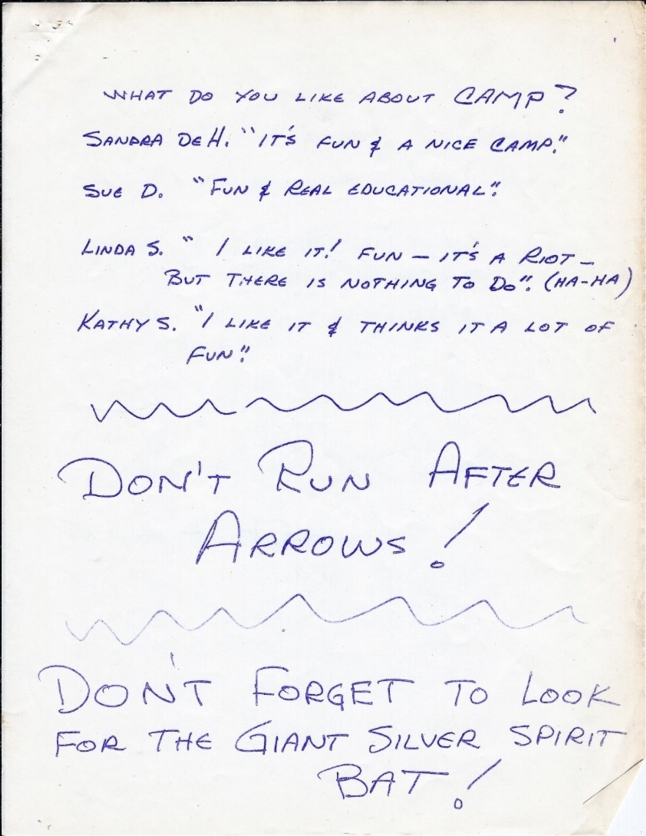 WHAT DO YOU LIKE ABOUT CAMP?
SANDRA DEH. "IT'S FUN & A NICE CAMP."
SUE D. "FUN & REAL EDUCATIONAL".
LINDA S. " I LIKE IT! FUN — IT'S A RIOT —
BUT THERE IS NOTHING TO DO". (HA-HA)
KATHY S. "I LIKE IT & THINKS IT A LOT OF
FUN".
DON'T RUN AFTER
ARROWS!
DON'T FORGET TO LOOK
FOR THE GIANT SILVER SPIRIT
BAT!